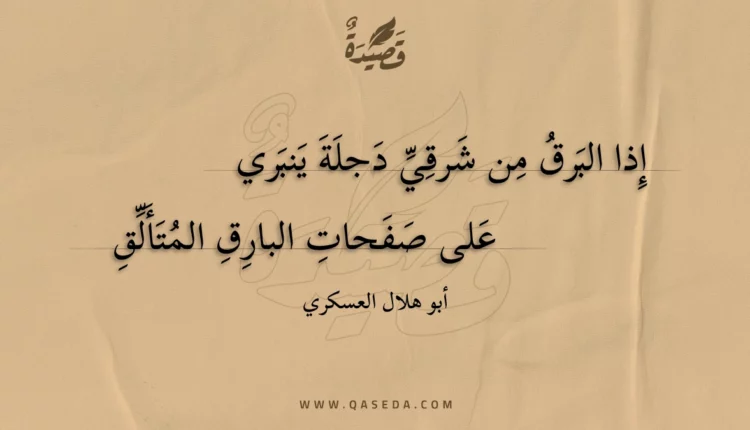 قَصِيدَةٌ
إِذا البَرقُ مِن شَرقِيِّ دَجلَةَ يَنبَري
عَلى صَفَحاتِ البارِقِ المُتَأَلِّقِ
أبو هلال العسكري
WWW.QASEDA.COM